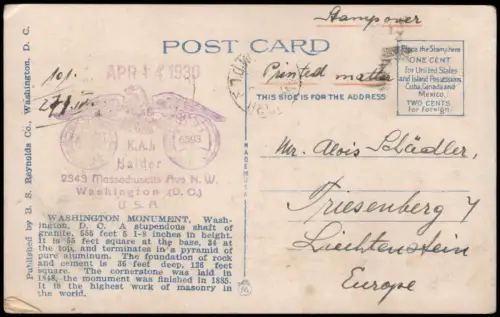 Stampover
POST CARD
Printed matter
THIS SIDE IS FOR THE ADDRESS
Place the Stamp here
ONE CENT
for United States
and Island Possessions
Cuba, Canada and
Mexico.
TWO CENTS
for foreign.
APR 14 1930
101.
K.A.H
Haider
2343 Massachusetts Ave N.W.
Washington (D.C.)
U.S.A
Mr. Alois Schädler,
Triesenberg 7
Liechtenstein
Europe
WASHINGTON MONUMENT, Wash-
ington, D. C. A stupendous shaft of
granite, 555 feet 5 1-8 inches in height.
It is 55 feet square at the base, 34 at
the top, and terminates in a pyramid of
pure aluminum. The foundation of rock
and cement is 36 feet deep, 126 feet
square. The cornerstone was laid in
1848, the monument was finished in 1885.
It is the highest work of masonry in
the world.
Published by B. S. Reynolds Co., Washington, D. C.